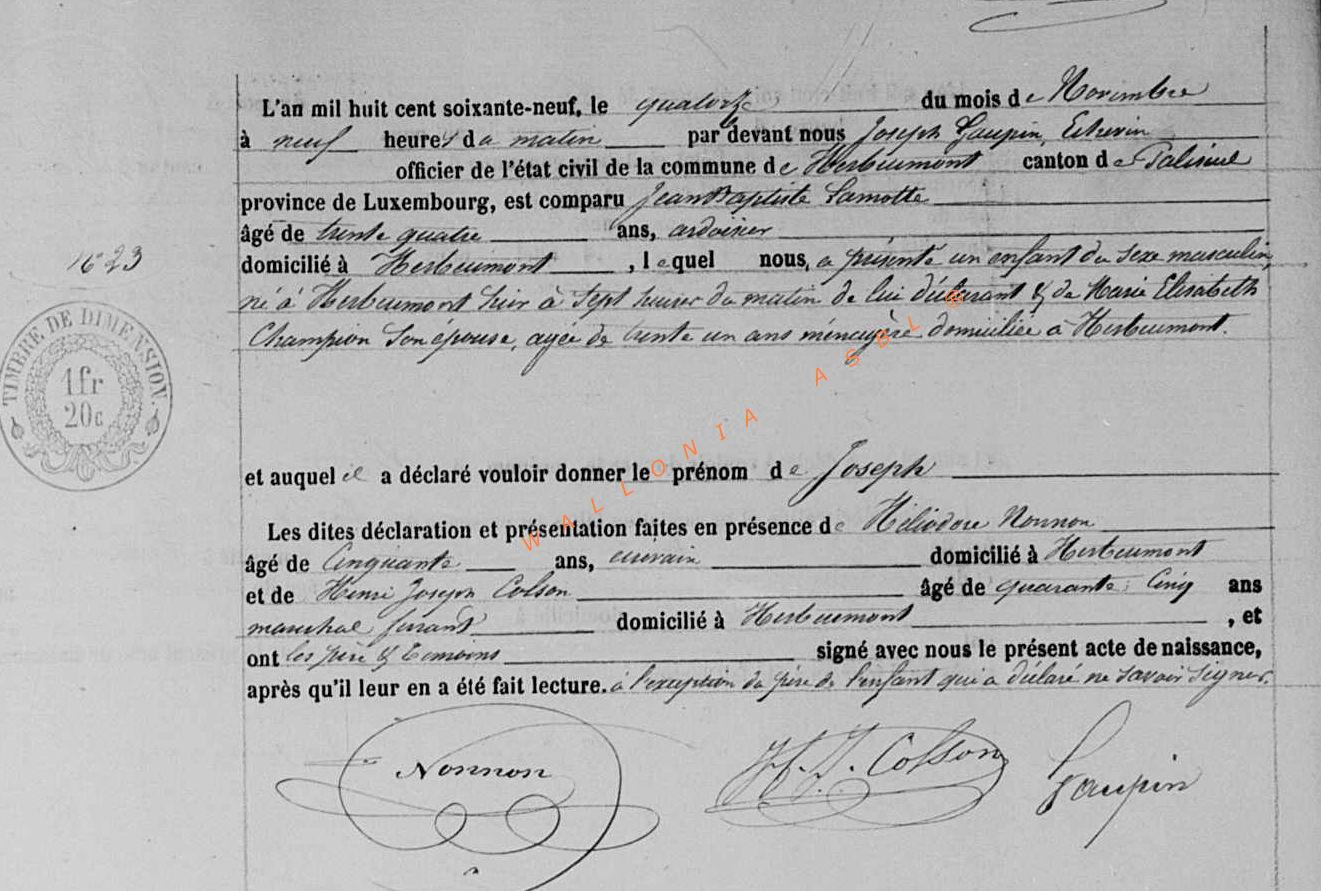 L'an mil huit cent soixante-neuf, le quatorze du mois de Novembre
à neuf heures du matin par devant nous Joseph Gaupin, Echevin
officier de l'état civil de la commune de Herbeumont canton de Paliseul
province de Luxembourg, est comparu Jean Baptiste Lamotte
âgé de trente quatre ans, ardoisier
domicilié à Herbeumont, lequel nous, a présenté un enfant du sexe masculin,
né à Herbeumont hier à sept heures du matin de lui déclarant & de Marie Elisabeth
Champion son épouse, agée de trente un ans ménagère domiciliée à Herbeumont.
N° 23
TIMBRE DE DIMENSION.
1fr
20c
et auquel il a déclaré vouloir donner le prénom de Joseph
Les dites déclaration et présentation faites en présence de Héliodore Nonnon
âgé de Cinquante ans, domicilié à Herbeumont
et de Henri Joseph Colson âgé de quarante Cinq ans
marechal ferant domicilié à Herbeumont, et
ont les père & témoins signé avec nous le présent acte de naissance,
après qu'il leur en a été fait lecture. à l'exception du père de l'enfant qui a déclaré ne savoir signer.
Nonnon
H. J. Colson
Gaupin
WALLONIA ASBL ©